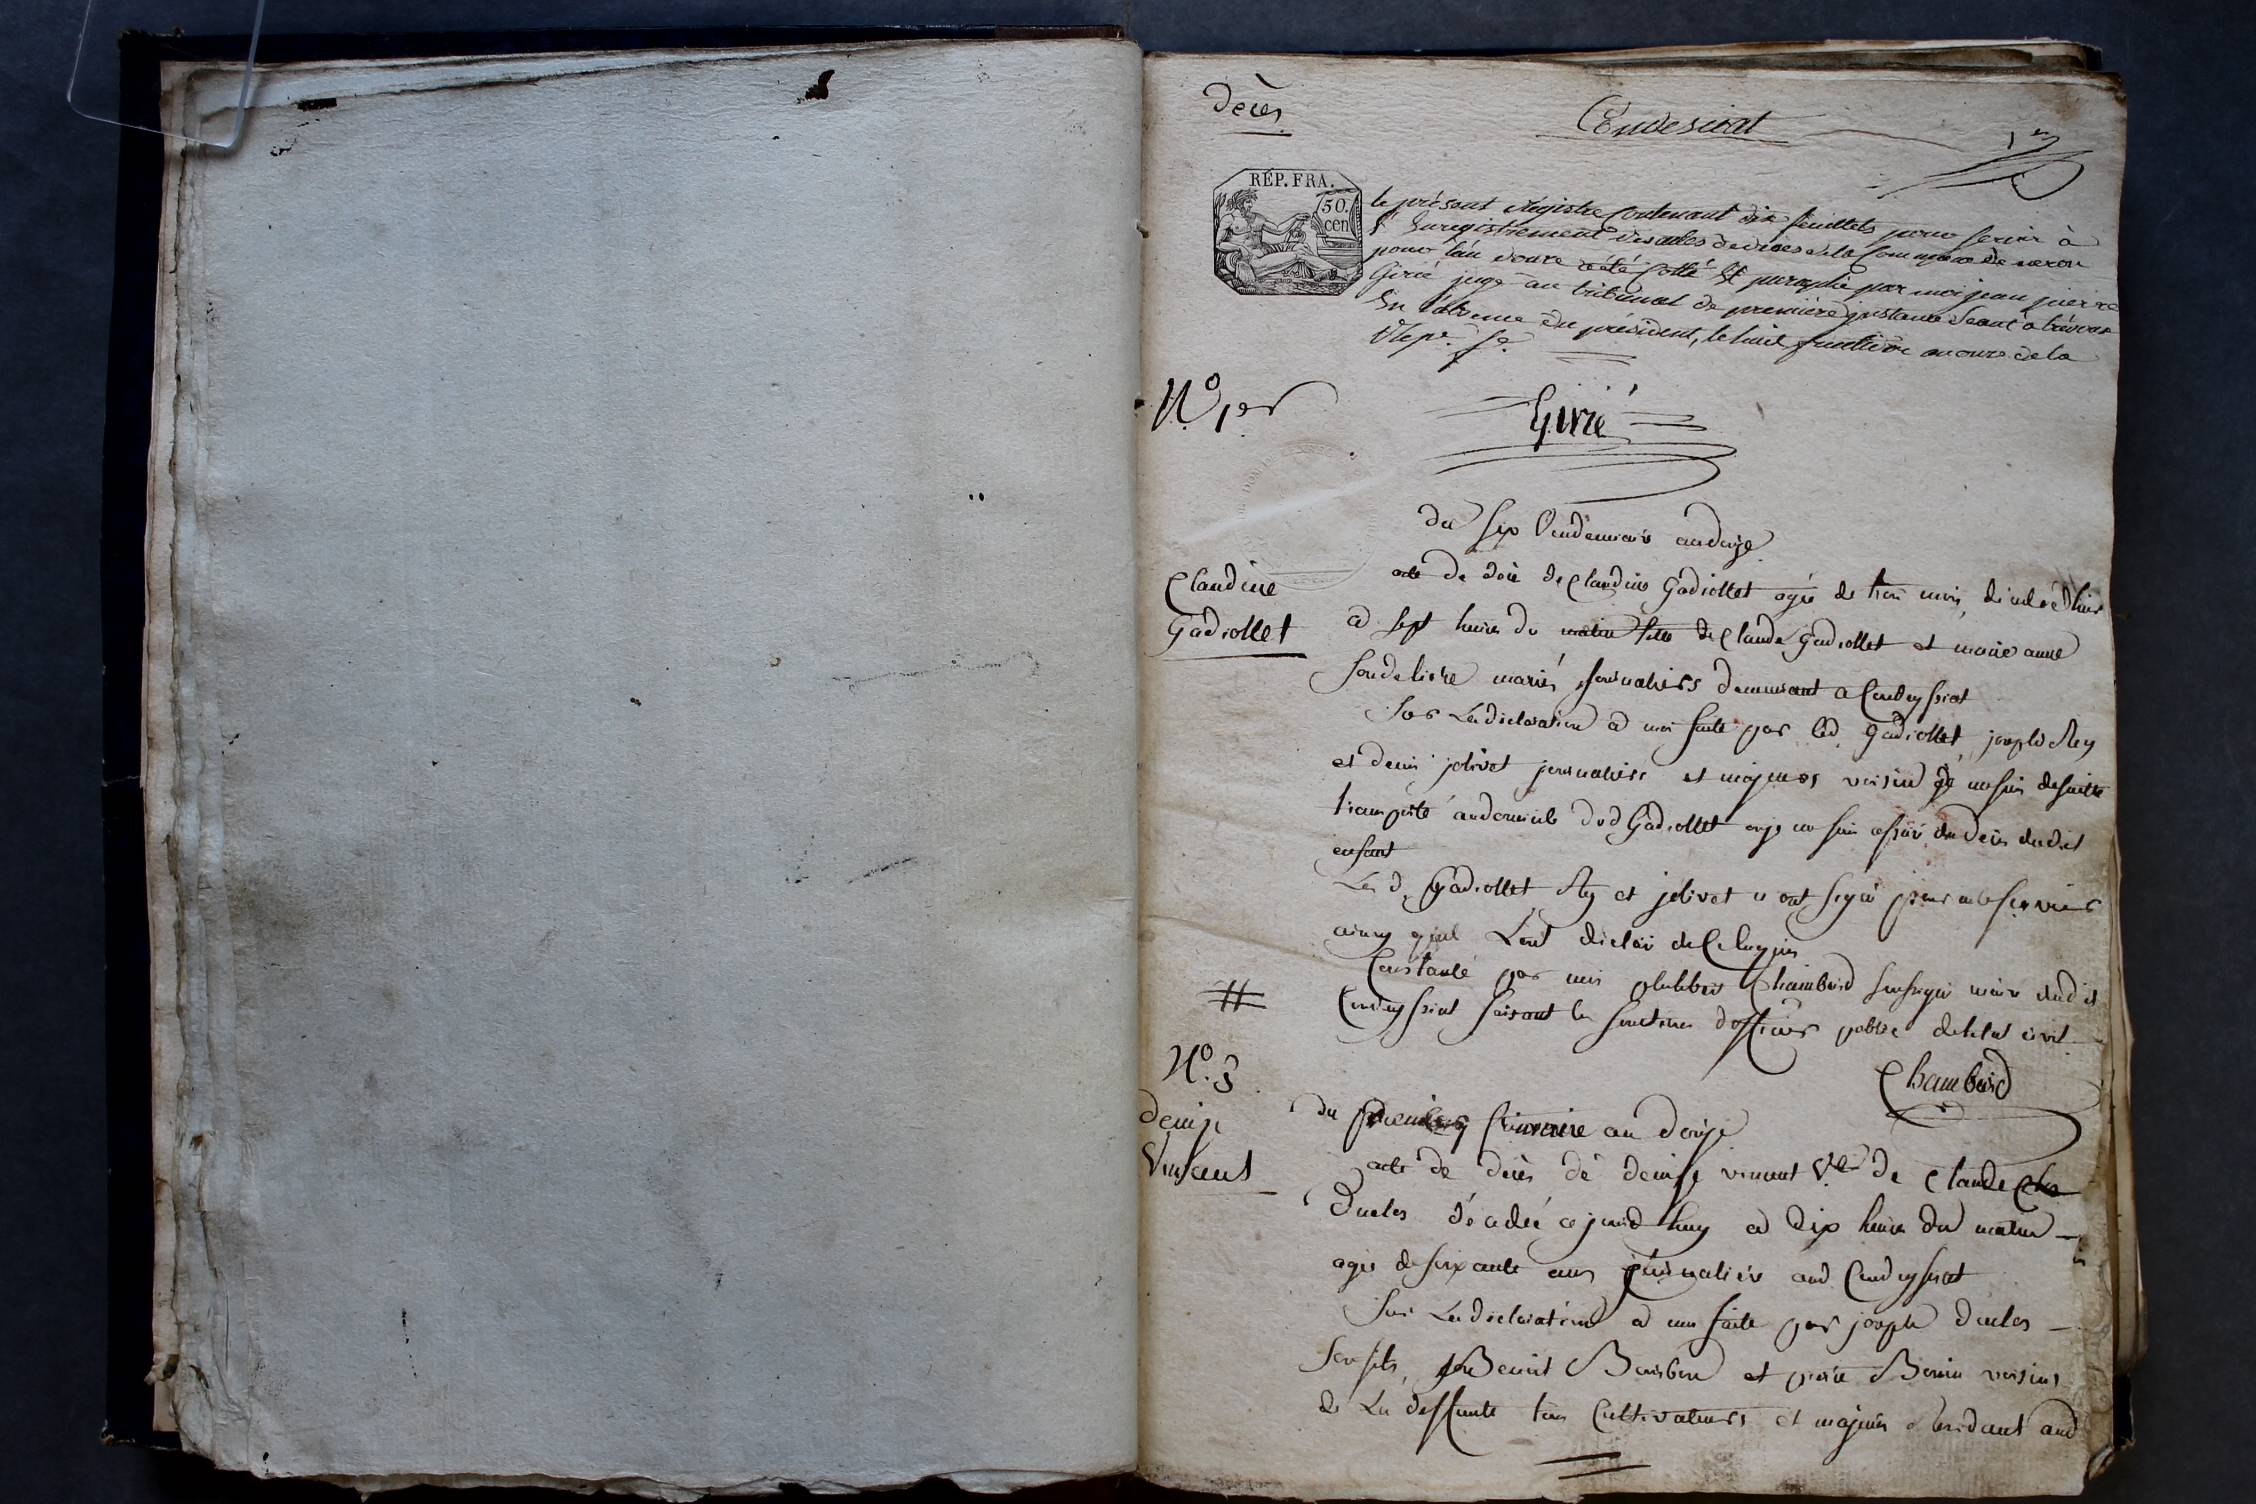 Décès
Condesiat
1er
RÉP. FRA.
50.
cen
le présent Registre Contenant dix feuillets pour servir à
l'Enregistrement des actes de décès de la Commune de
pour l'an douze a été Cotté et paraphé par moi jean pierre
Girié juge au tribunal de première instance séant à trévoux
En l'absence du président, le huit fructidor an onze de la
Rep.e fe.
Girié
N.o 1er
du six Vendemiair an douze
Claudine
Gadiollet
acte de décè de Claudine Gadiollet agée de trois mois, décédée hier
a sept heures du matin fille de Claude Gadiollet et marie anne
mariés journaliers demeurant a Condeyssiat
Sur La déclaration a moi faitte par led. Gadiollet, joseph Rey
et denis jolivet journaliers et majeurs voisins je me suis de suitte
transporté au domicile dud Gadiollet ou je me suis assuré du décès dudit
enfant
Les d. Gadiollet Rey et jolivet n ont signé pour ne le
ainsy quil Lont déclaré de Ce
Constaté par moi philibert Chambard soussigné maire dudit
Condeyssiat faisant les fonctions dofficier public de létat civil
Chambard
N.o 3
denise
Vincent
du frimaire an douze
acte de décès de denise vincent V.e de Claude
Duclos décédée ce jourd'huy a dix heures du matin
agée de soixante ans journalière aud. Condeyssiat
Sur La déclaration a moi faite par joseph duclos
son fils, Benoit Bourbon et pierre voisins
de La deffunte tous Cultivateurs et majeurs Residant aud